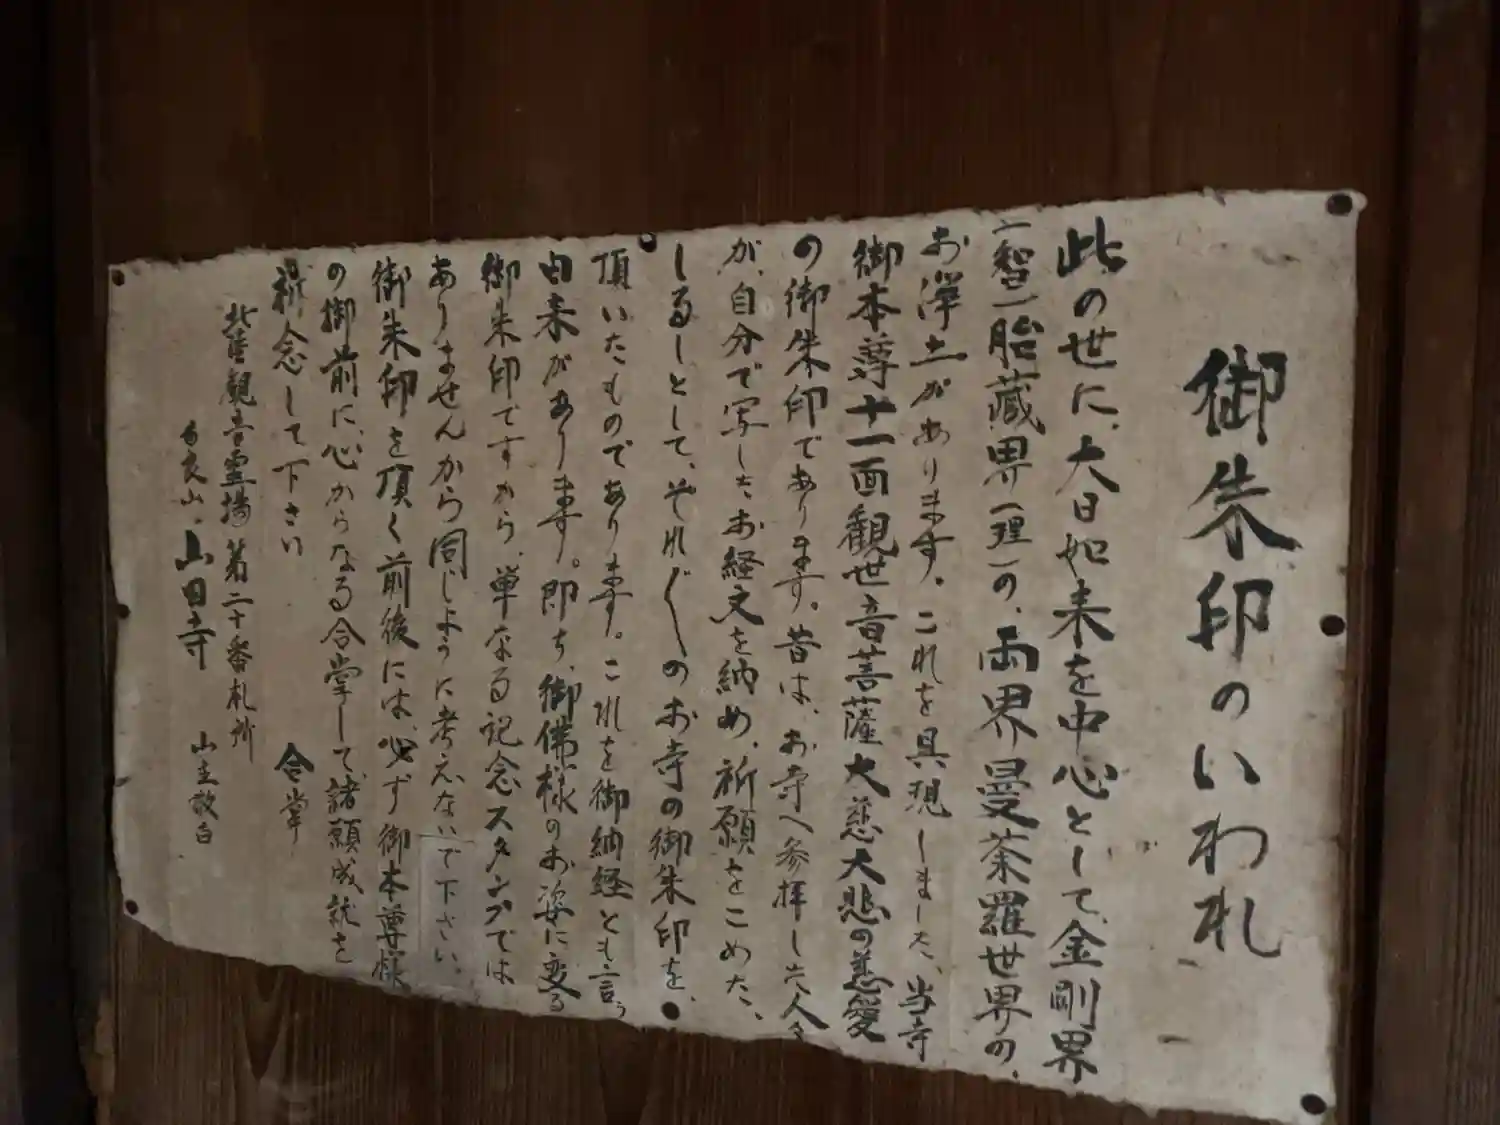 御朱印のいわれ
此の世に、大日如来を中心として、金剛界
(智)胎蔵界(理)の、両界曼荼羅世界の、
お浄土があります。これを具現しました、当寺
御本尊十一面観世音菩薩大慈大悲の慈愛
の御朱印であります。昔は、お寺へ参拝した人々
が、自分で写したお経文を納め、祈願をこめた、
しるしとして、それ〲のお寺の御朱印を、
頂いたものであります。これを御納経とも言う
由来があります。即ち、御佛様のお姿に変る
御朱印ですから、単なる記念スタンプでは
ありませんから同じように考えないで下さい。
御朱印を頂く前後には、必ず御本尊様
の御前に、心からなる合掌して、諸願成就を
祈念して下さい 合掌
北陸観音霊場第二十番札所
山田寺 山主敬白